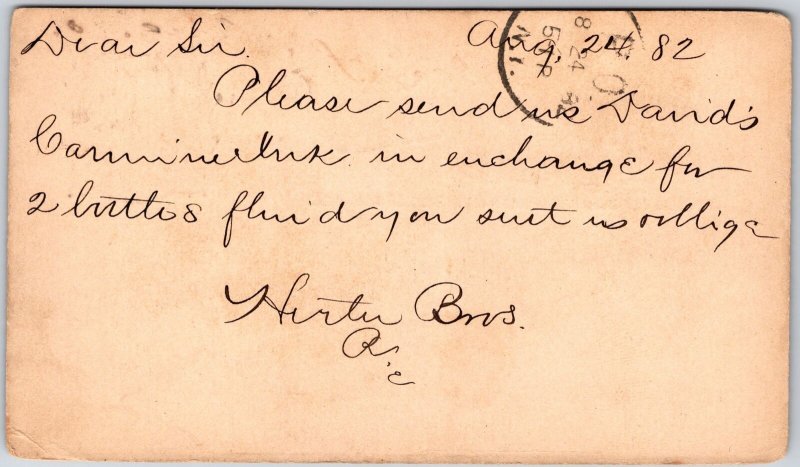 Dear Sir. Aug, 24 82
Please send us David's
Carmine Ink in exchange for
2 bottles fluid you sent us oblige
Herter Bros.
8 24
5 30 P
N.Y.